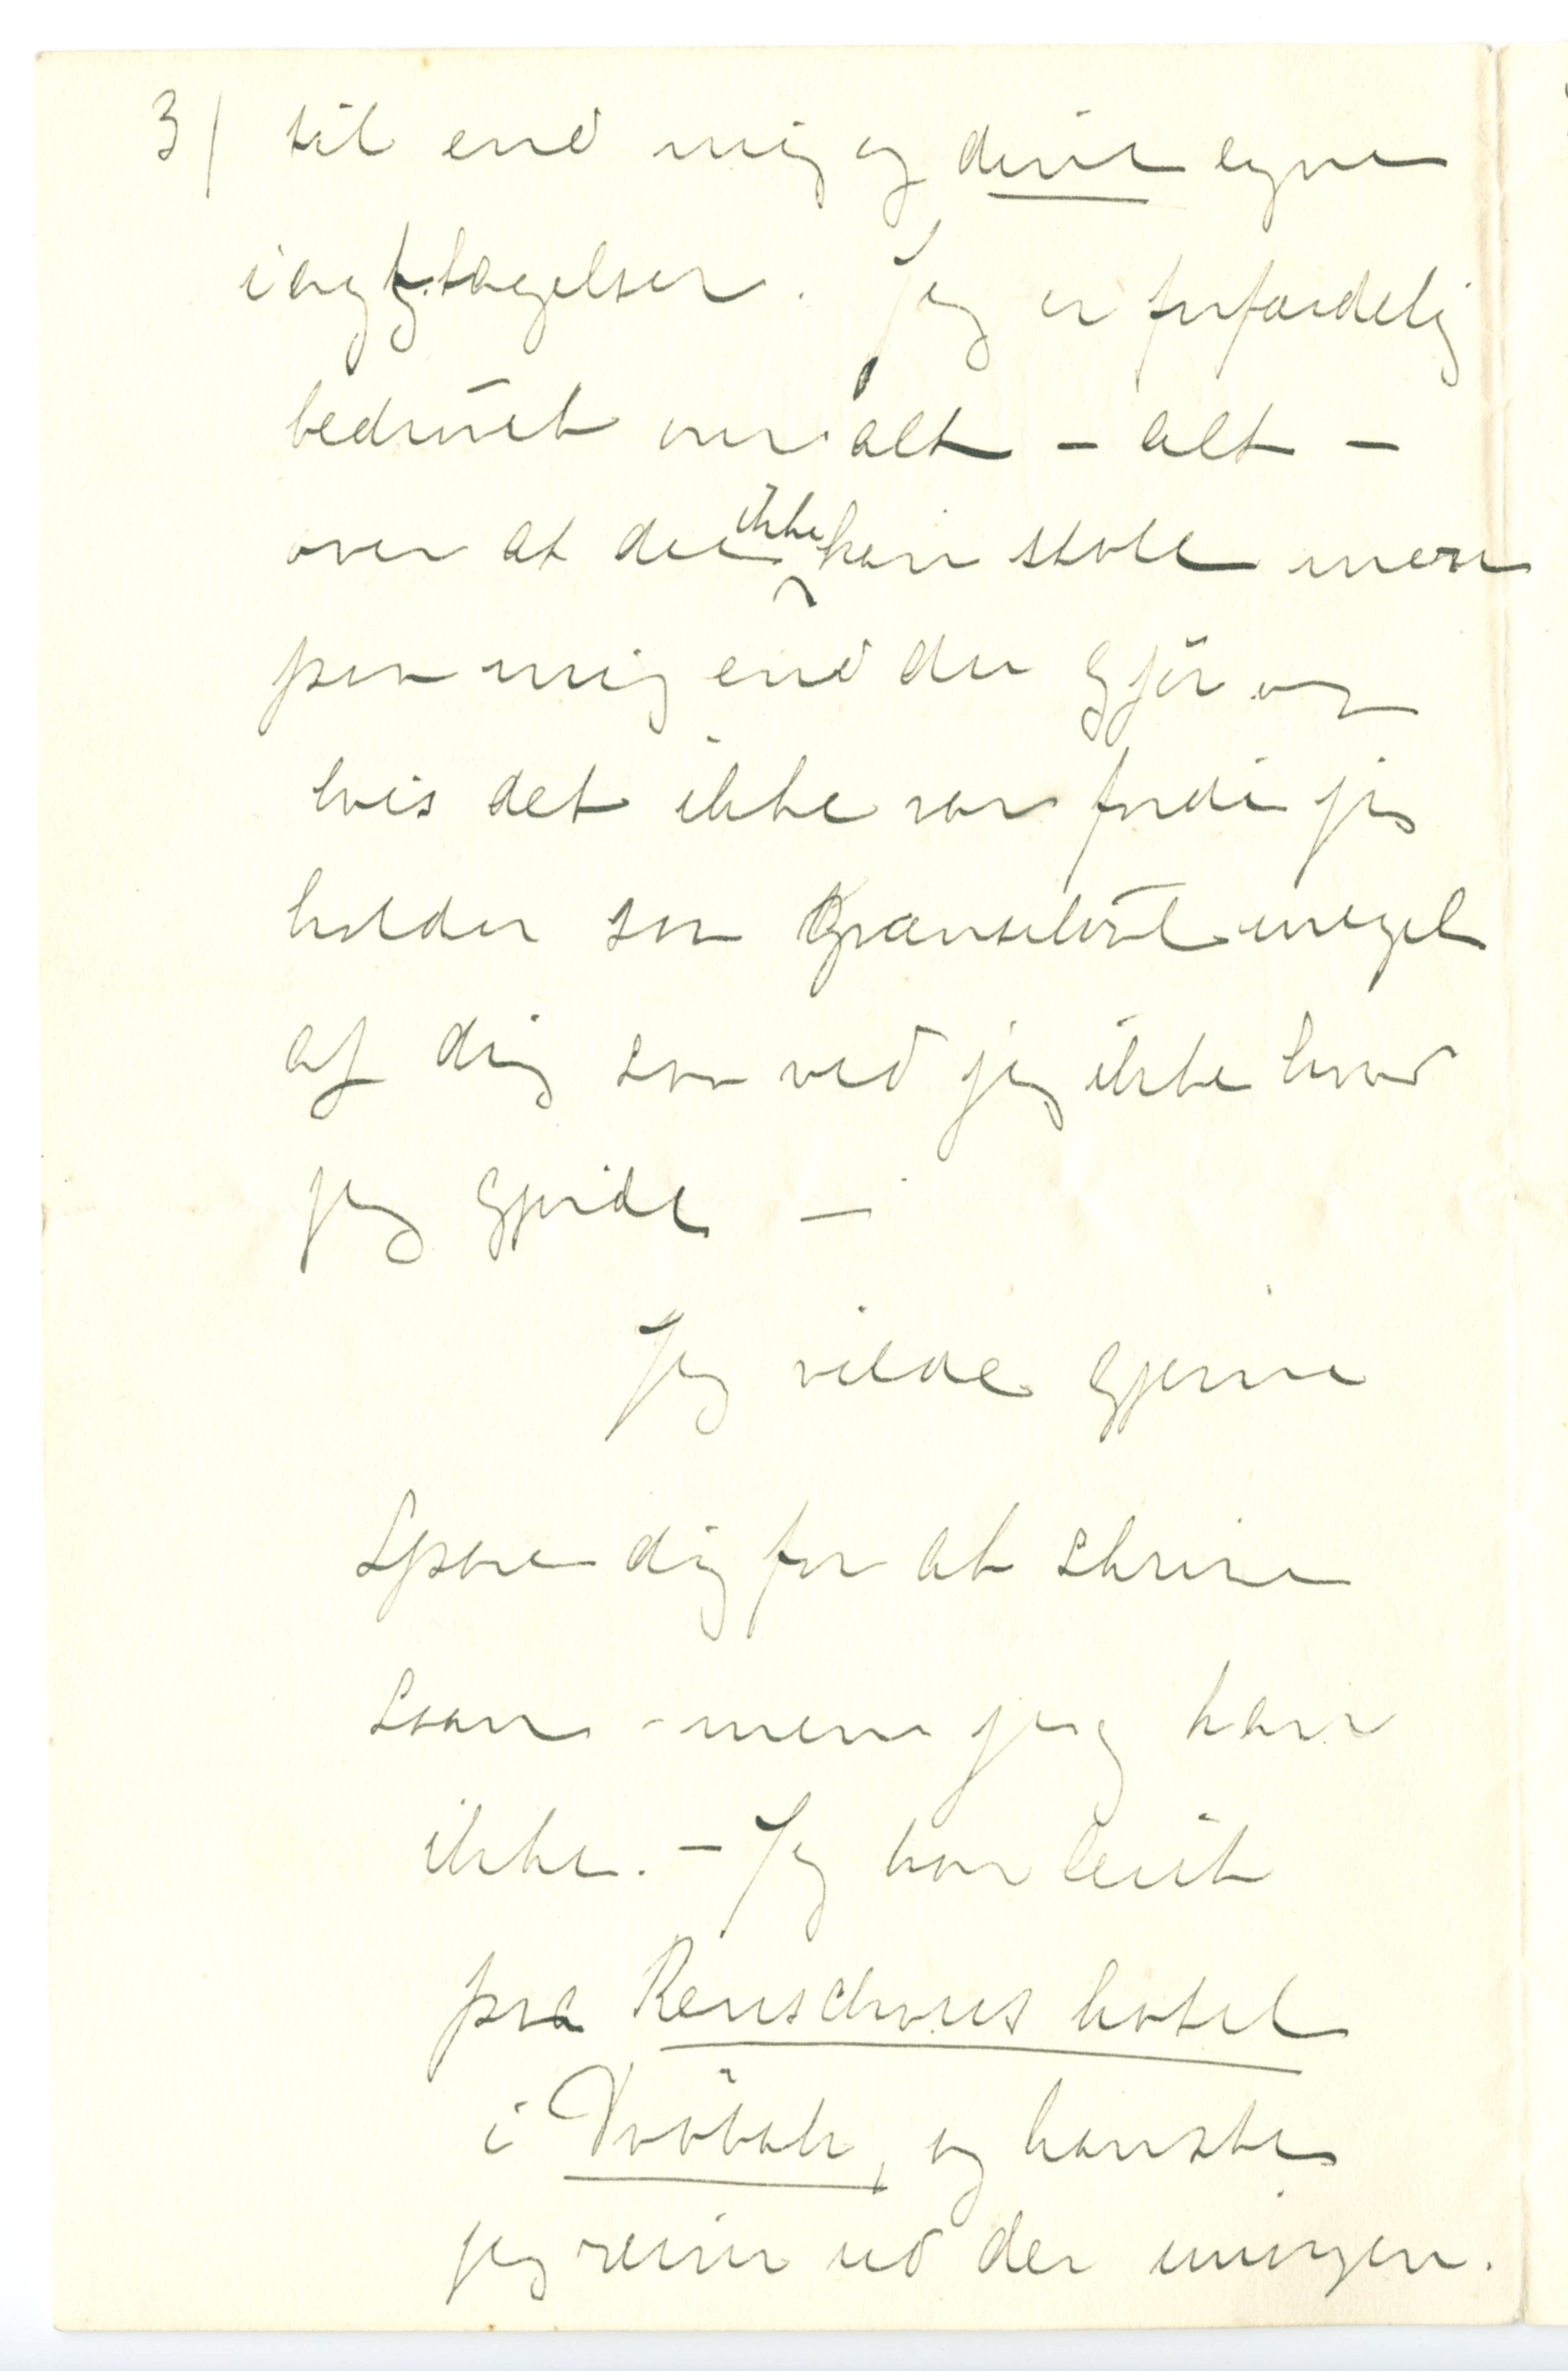 3/ til end mig og dine egne
iagttagelser. Jeg er forfærdelig
bedrövet over alt – alt –
over at du ikke kan stole mere
paa mig end du gjör og
hvis det ikke var fordi jeg
holder saa grænselöst meget
af dig saa ved jeg ikke hvad
jeg gjorde –
Jeg vilde gjerne
spare dig for at skrive
saan – men jeg kan
ikke. – Jeg har leiet
paa Renschous hotel
i Dröbak, og kanske
jeg reiser ud der imorgen.